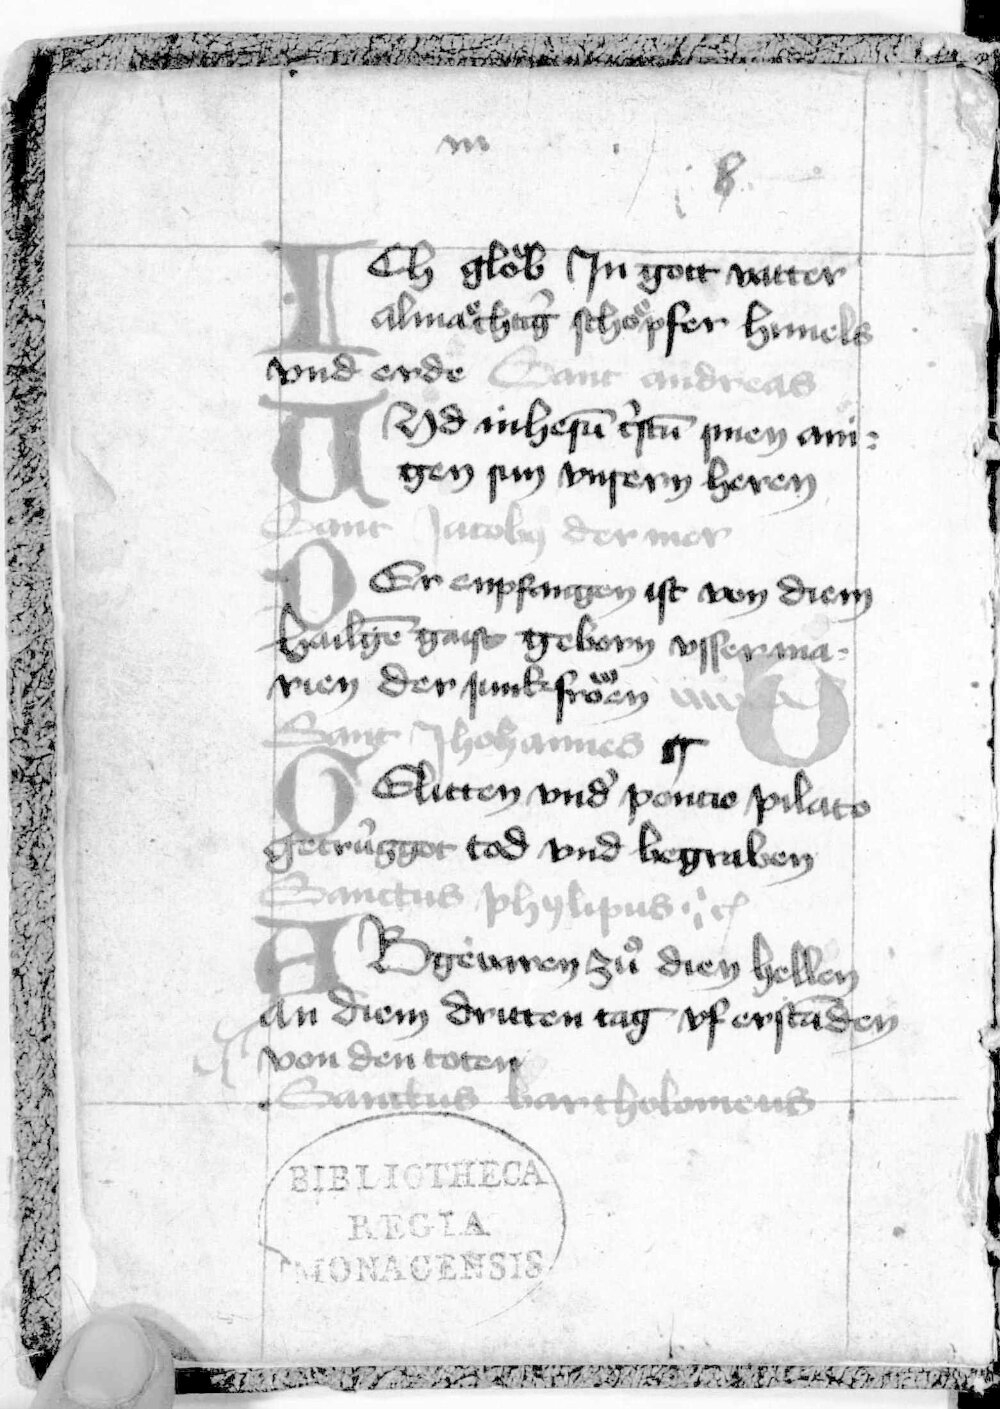 m
8
ICh glo᷎b In gott vatter
almaͤchtigͬ schoͤpfer himels
vnd erde Sant andreas
UNd in ihesū cͬstū sinen ani⸗
gen sun vnsern heren
Sant Jacobus der mer
DEr enpfangen ist von diem
hailgē gaist geborn vsser ma⸗
rien der junkfroͤwen
Sant Jhohannes
GElitten vndͬ pontio pilato
getruͤggot tod vnd begraben
Sanctus phylipus
ABgevaren zuͦ dien hellen
an diem dritten tag vf erstāden
von den toten
Sanctus bartholomeus
BIBLIOTHECA
REGIA
MONACENSIS